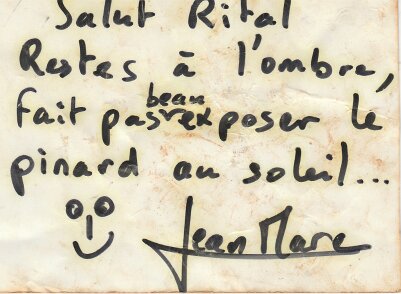 Salut Rital
Restes à l'ombre,
fait pas beau exposer le
pinard au soleil...
Jean Marc